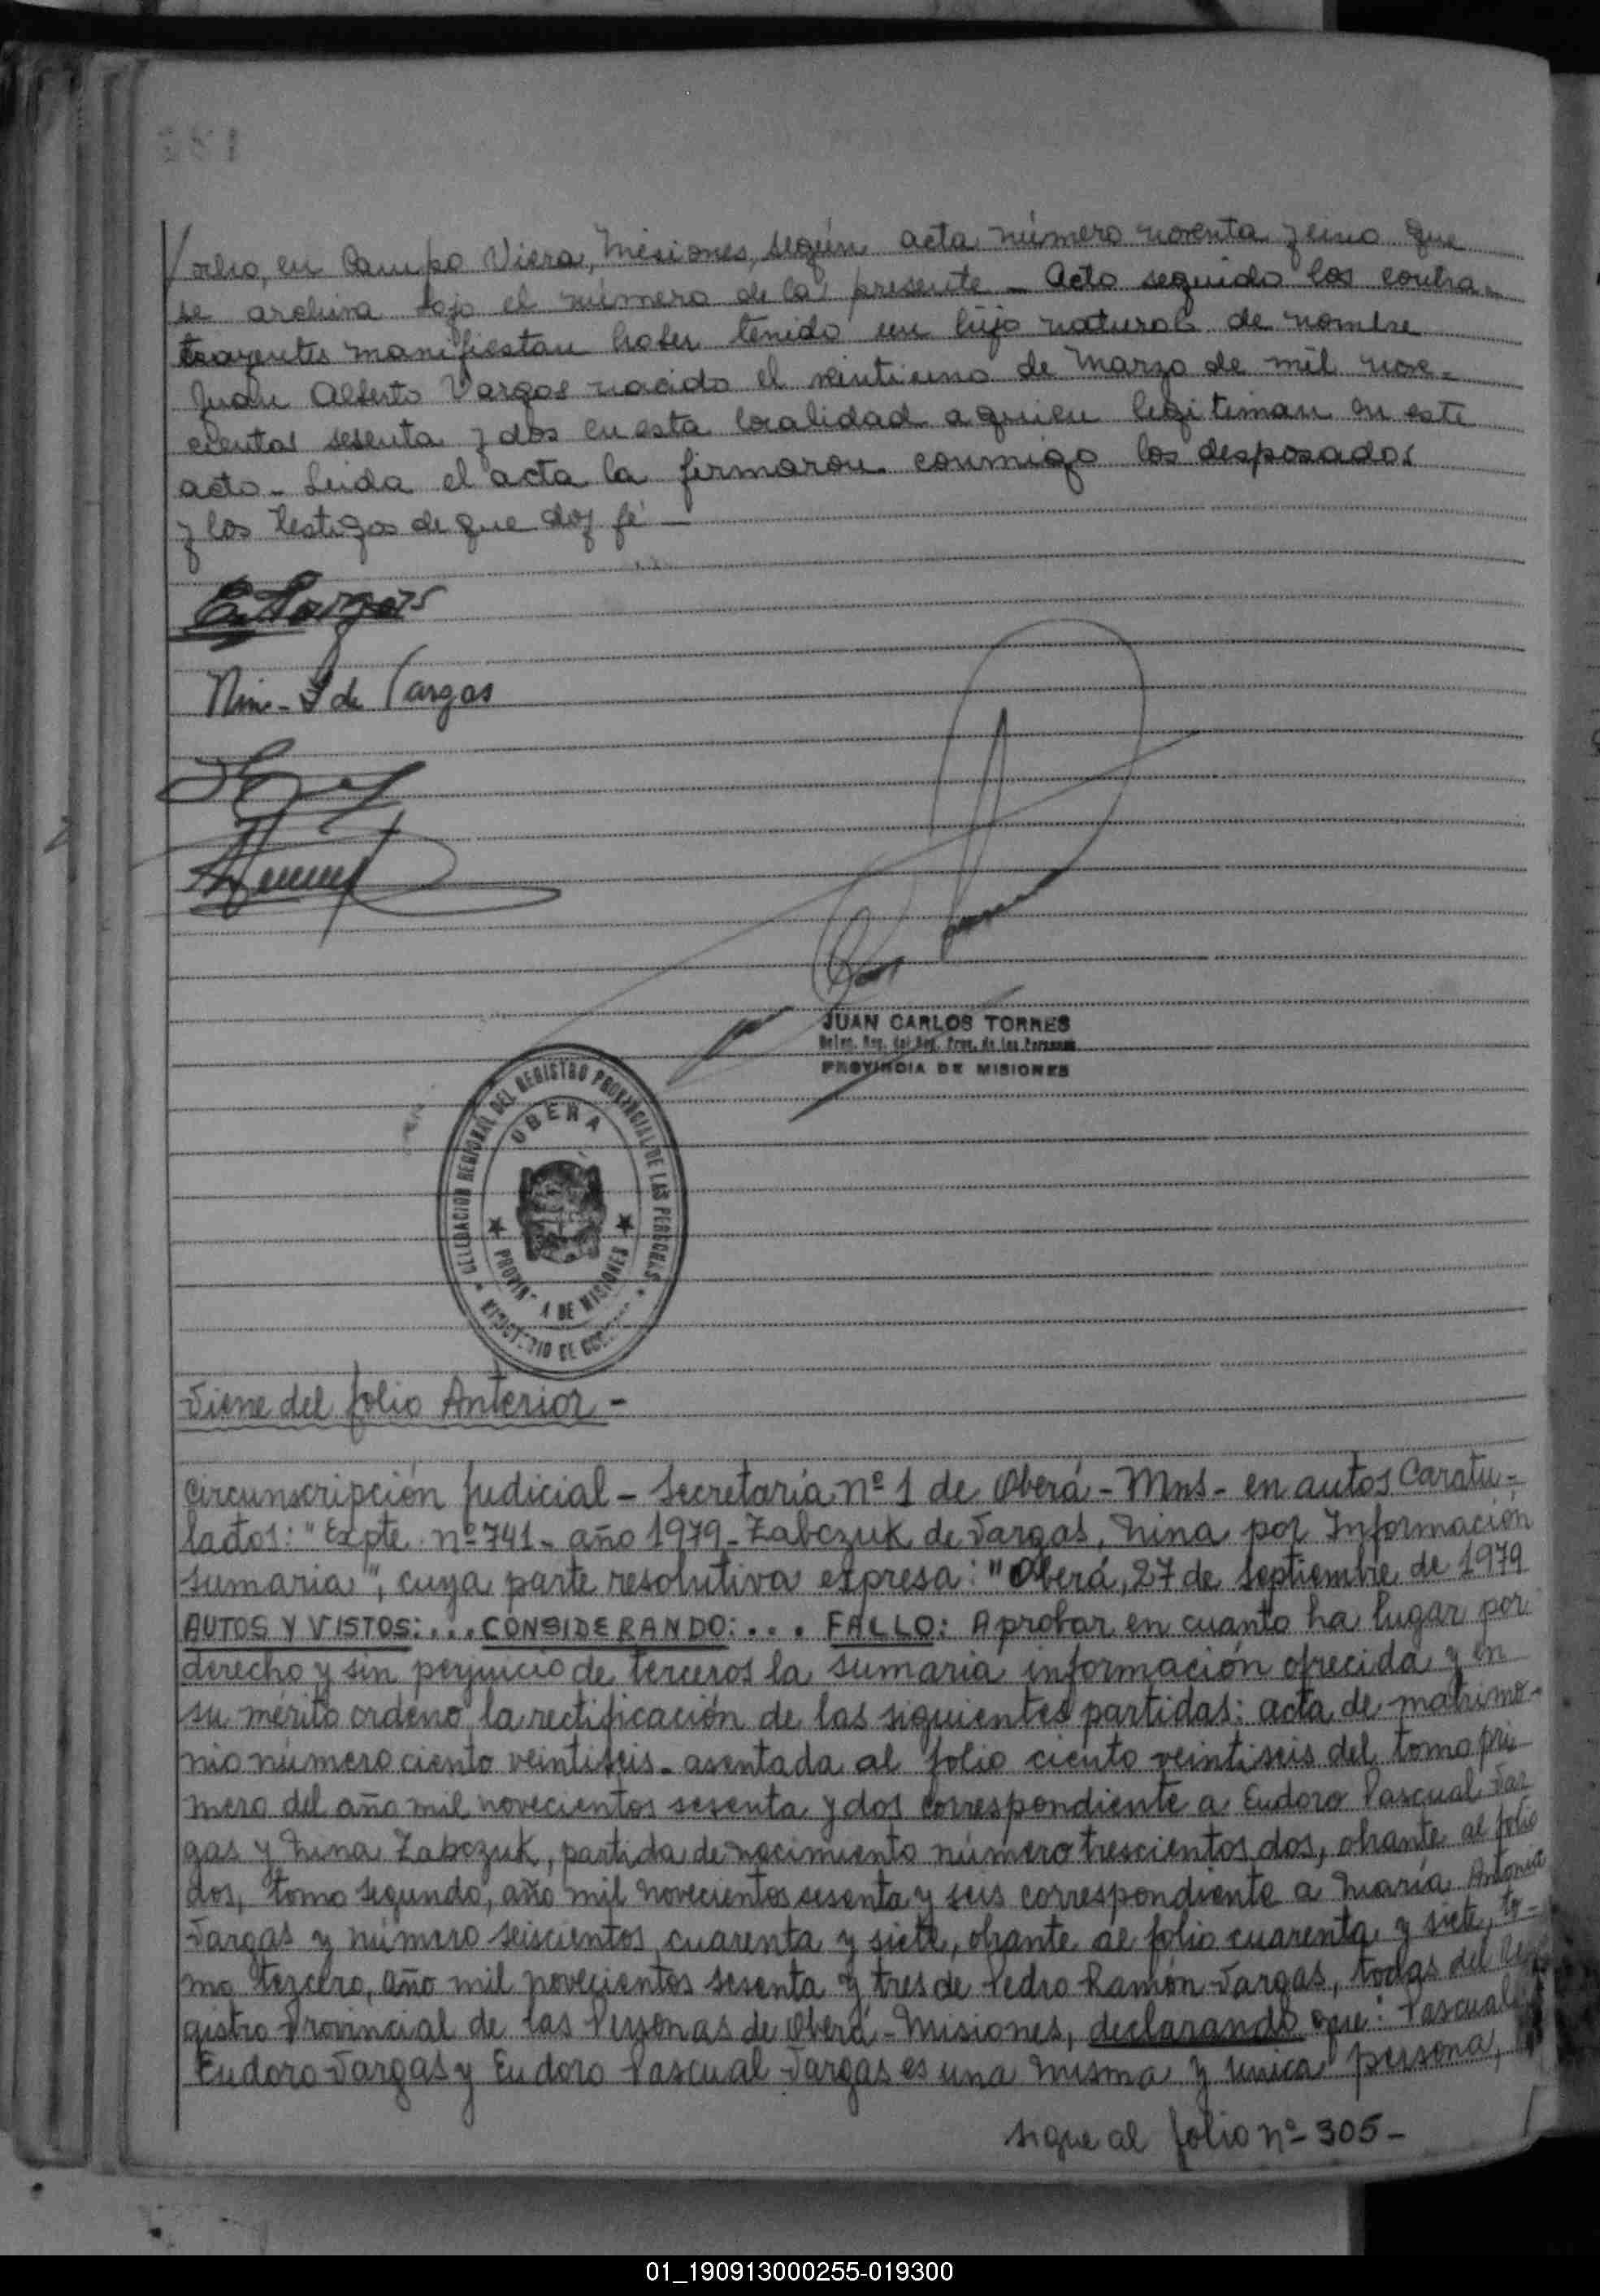 / ocho, en Campo Viera, Misiones, según acta número noventa y cinco que
se archiva bajo el número de la presente - Acto seguido los contra-
trayentes manifiestan haber tenido un hijo natural de nombre
Juan Alberto Vargas nacido el veintiuno de Marzo de mil nove-
cientos sesenta y dos en esta localidad a quien legitiman en este
acto - Leida el acta la firmaron conmigo los desposados
y los testigos de que doy fé -
E. Vargas
de Vargas
JUAN CARLOS TORRES
Deleg. Reg. del Reg. Prov. de las Personas
PROVINCIA DE MISIONES
DELEGACION REGIONAL DEL REGISTRO PROVINCIAL DE LAS PERSONAS
OBERA
PROVIN A DE MISIONES
MINISTERIO DE
Viene del folio Anterior -
Circunscripción Judicial - Secretaría nº 1 de Oberá - Mns - en autos Caratu-
lados: "Expte. nº 741 - año 1979 - Zabczuk de Vargas, Nina por Información
Sumaria", cuya parte resolutiva expresa: "Oberá, 27 de septiembre de 1979
AUTOS Y VISTOS:... CONSIDERANDO:... FALLO: Aprobar en cuanto ha lugar por
derecho y sin perjuicio de terceros la sumaria información ofrecida y en
su mérito ordeno la rectificación de las siguientes partidas: acta de matrimo-
nio número ciento veintiseis - asentada al folio ciento veintiseis del tomo pri-
mero del año mil novecientos sesenta y dos correspondiente a Eudoro Pascual Var
gas y Nina Zabczuk, partida de nacimiento número trescientos dos, obrante al folio
dos, tomo segundo, año mil novecientos sesenta y seis correspondiente a María Antonia
Vargas y número seiscientos cuarenta y siete, obrante al folio cuarenta y siete, to-
mo tercero, año mil novecientos sesenta y tres de Pedro Ramón Vargas, todas del Re-
gistro Provincial de las Personas de Oberá - Misiones, declarando que: Pascual
Eudoro Vargas y Eudoro Pascual Vargas es una misma y única persona,
sigue al folio nº 305 -
01_190913000255-019300